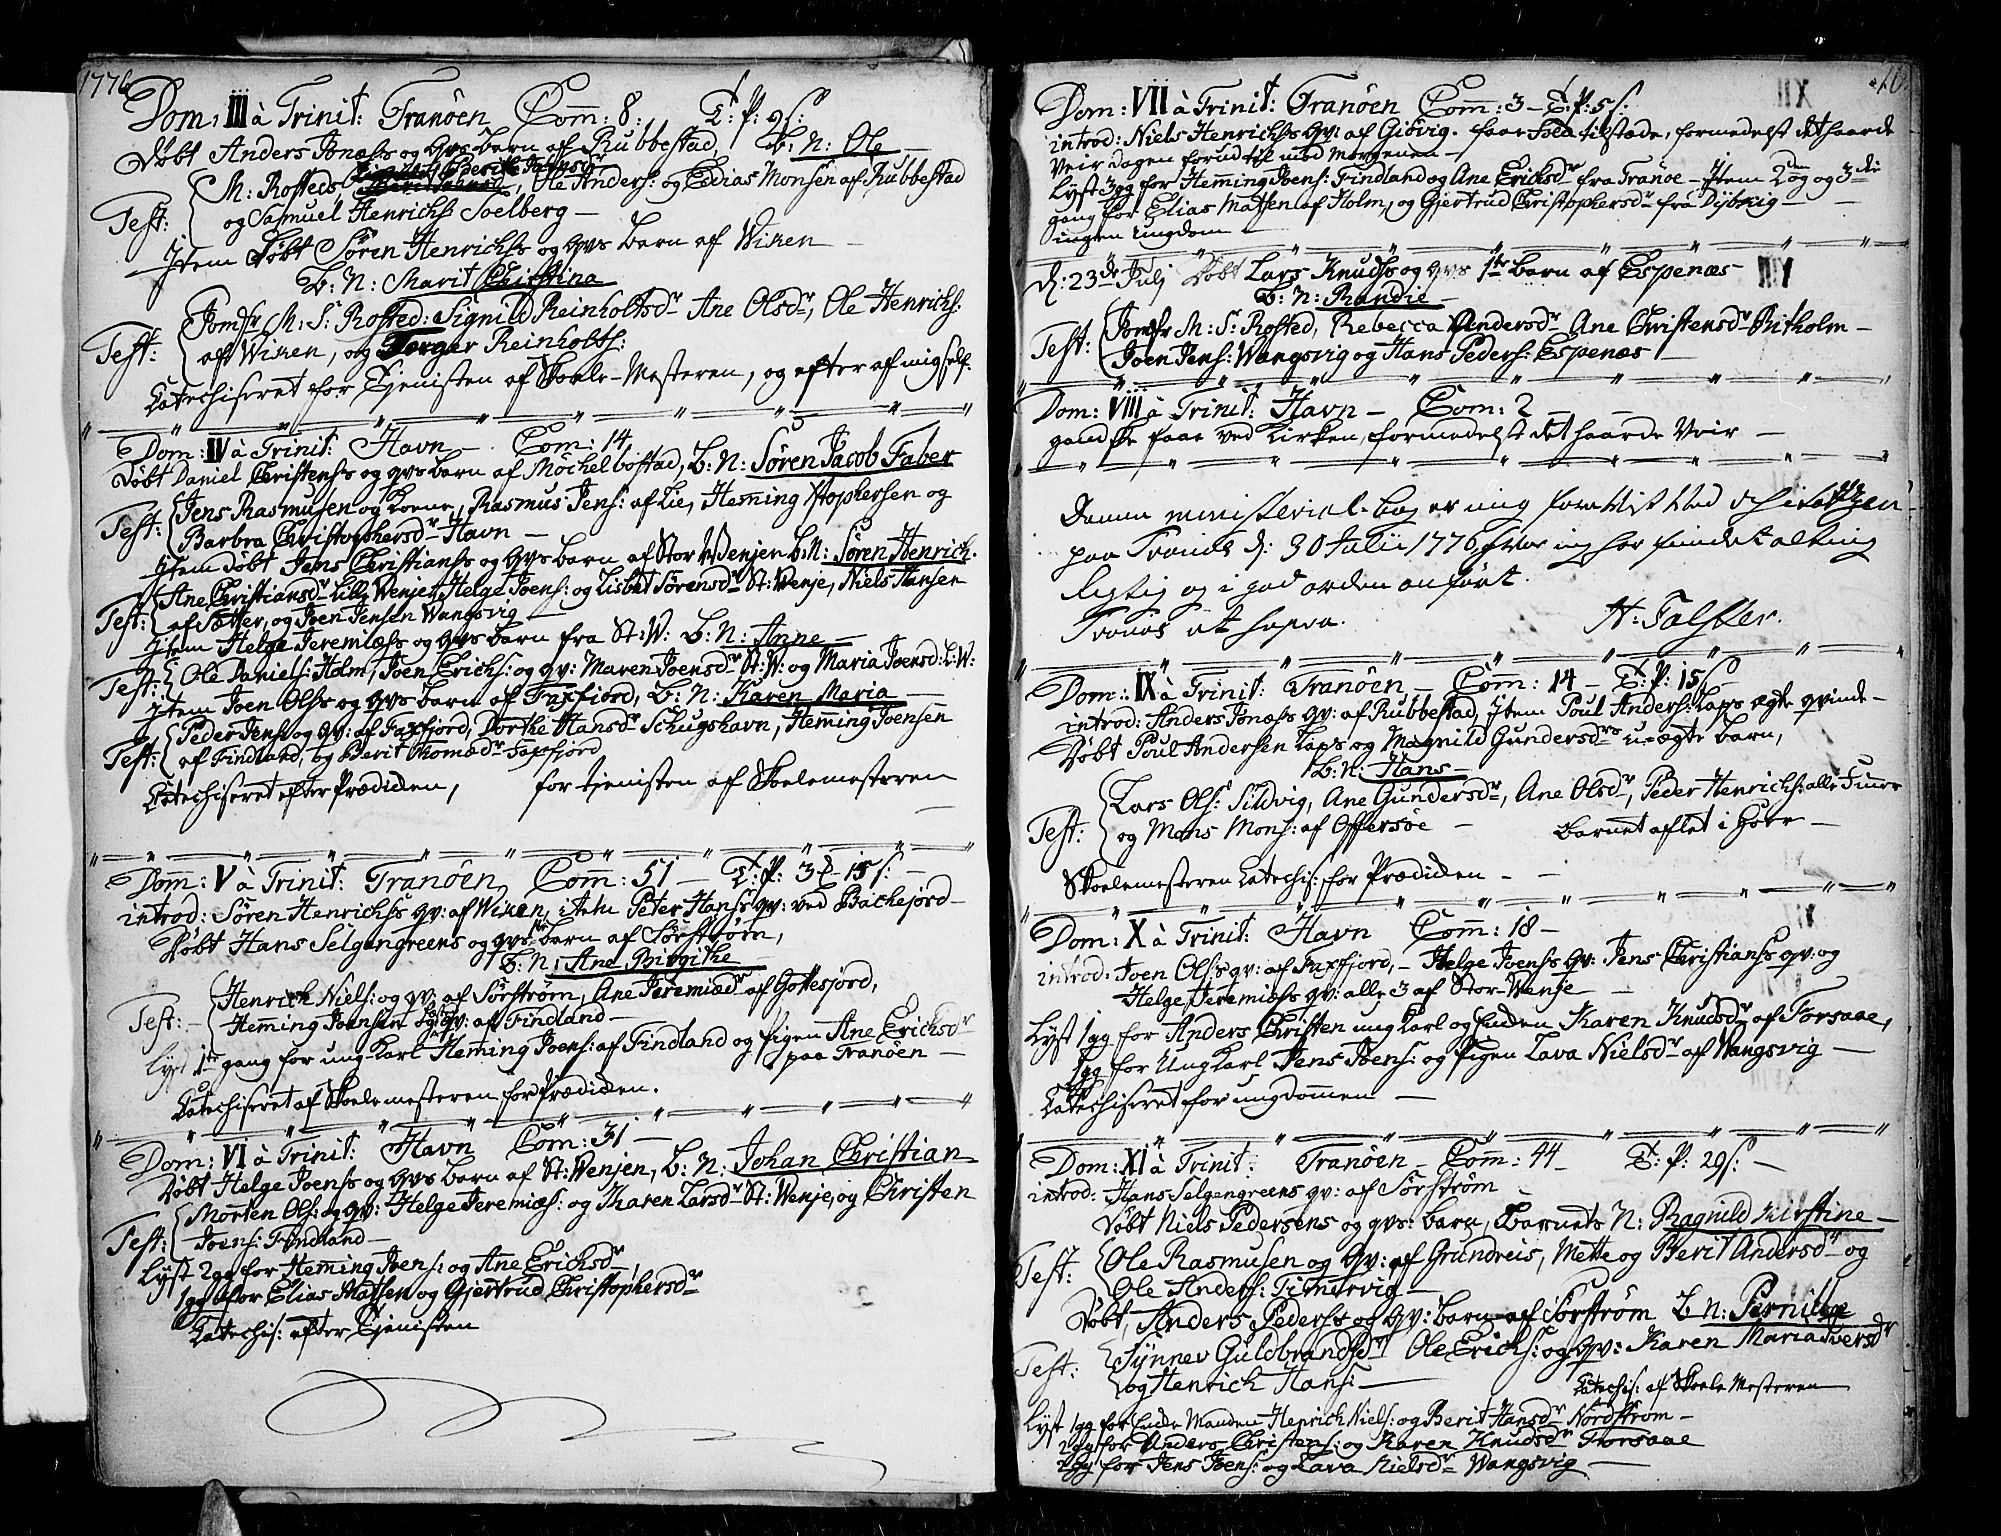 1776
Dom: III à Trinit: Tranöen Com̄: 8. T: P: 9 s:
Döbt Anders Jonæss og qvs barn af Rubbestad, b: N: Ole
M: Rosteds, Ole Anders: og Edias Monsen af Rubbestad
Test: og Samuel Henrichs: Soelberg —
Jtem Döbt Sören Henrichss og qvs barn af Wiken —
b: N: Marit Christina
Jomfr M: S: Rosted: Signild Reinholtsdr Ane Olsdr, Ole Henrichs:
Test: af Wiken, og Torger Reinholts:
Catechiseret for Tjenisten af Skole-Mesteren, og efter af mig self.
Dom: IV à Trinit: Havn — Com: 14,
Döbt Daniel Christenss og qvs barn af Möchelbostad, b: N: Sören Jacob Faber
Test: Jens Rasmusen og Kone, Rasmus Jens: af Lie, Hem̄ing Stophersen og
Barbra Christophersdr Havn —
Jtem döbt Jens Christianss og qvs barn af Stor Wenjen b: N: Sören Henrich.
Ane Christiansdr Lill Wenje, Helge Joens: og Lisbet Sörensdr St: Wenje, Niels Hansen
Test: af Sætter, og Joen Jensen Wangsvig —
Jtem Helge Jeremiæss og qvs barn fra St: W: b: N: Anne —
Test: Ole Daniels: Holm, Joen Erichs: og qv: Maren Joensdr St: W: og Maria Joensd: L: W:
Jtem Joen Olss og qvs barn af Faxfiord, b: N: Karen Maria —
Peder Jens: og qv: af Faxfjord, Dorthe Hansdr Schugshavn, Hem̄ing Joensen
Test: af Findland, og Berit Thomædr Faxfjord
Catechiseret efter Prædiken, for tjenisten af Skolemesteren —
Dom̄: V à Trinit: Tranöen, Com̄: 51 — T: P: 3 — 15 s: —
introd: Sören Henrichss qv: af Wiken, item Peter Hanss qv: ved Backejord —
Döbt Hans Selgengreens og qvs 1te barn af Sörström,
b: N: Ane Birgithe
Henrich Niels: og qv: af Sörström, Ane Jeremiædr af Gottesjord,
Test: Hem̄ing Joensen og qv: af Findland —
Lyst 1te gang for ung karl Hem̄ing Joens: af Findland og Pigen Ane Erichsdr
paa Tranöen —
Catechiseret af Skolemesteren for Prædiken.
Dom: VI à Trinit: Havn Com: 31 —
Döbt Helge Joenss og qvs barn af St: Wenjen, b: N: Johan Christian
Morten Ols: og qv: Helge Jeremiæs: og Karen Larsdr St: Wenje, og Christen
Test: Joens: Findland —
Lyst 2 gg for Hem̄ing Joens: og Ane Erichsdr,
1 gg for Elias Matsen og Gjertrud Christophersdr
Catechis: efter Tjenisten
Dom: VII à Trinit: Tranöen Com̄: 3 — T: P: 5 s:
introd: Niels Henrichss qv: af Giövig. faae Folk tilstæde, formedelst det haarde
Veir dagen forud til mod Morgenen —
Lyst 3 gg for Hem̄ing Joens: Findland og Ane Erichsdr fra Tranöe — Jtem 2den og 3die
gang for Elias Matsen af Holm, og Gjertrud Christophersdr fra Dybvig —
ingen Ungdom —
d: 23de Julj Döbt Lars Knudss og qvs 1te barn af Espenæs —
b: N: Randie —
Jomfr M: S: Rosted, Rebecca Andersdr Ane Christensdr Britholm —
Test: Joen Jens: Wangsvig og Hans Peders: Espenæs —
Dom: VIII à Trinit: Havn — Com: 2 —
gandske faae ved Kirken, formedelst det haarde Veir —
Denne ministerial-bog er mig foreviist ved
paa Tranöe d: 30 Julii 1776 hvor jeg har fundet alting
rigtig og i god orden anfört.
Tranös ut supra. H: Falster.
Dom: IX à Trinit: Tranöen, — Com̄: 14 — T: P: 15 s
introd: Anders Jonæss qv: af Rubbestad, Jtem Poul Anders: Laps ægte qvinde —
Döbt Poul Andersen Laps og Magnild Gundersdrs uægte barn,
b: N: Hans —
Lars Ols: Sildvig, Ane Gundersdr, Ane Olsdr, Peder Henrichs: alle Finner
Test: og Mons Mons: af Offersöe — Barnet aflet i Hoer —
Skolemesteren Catechis: for Prædiken —
Dom: X à Trinit: Havn Com̄: 18 —
introd: Joen Olss qv: af Faxfjord, — Helge Joenss qv: Jens Christianss qv: og
Helge Jeremiæss qv: alle 3 af Stor-Wenje —
Lyst 1 gg for Anders Christen ung karl og Enken Karen Knudsdr af Forsaae,
1 gg for Ung karl Jens Joens: og Pigen Lava Nielsdr af Wangsvig —
Catechiseret for ungdom̄en —
Dom: XI à Trinit: Tranöen — Com̄: 44 — T: P: 29 s: —
introd: Hans Selgengreens qv: af Sörström
Döbt Niels Pedersens og qvs: barn, Barnets N: Ragnild Kirstine —
Test: Ole Rasmusen og qv: af Grundreis, Mette og Berit Andersdr og
Ole Anders: Tinnervig —
Döbt, Anders Pederss og qv: barn af Sörström b: N: Pernille
Test: Synnev Guldbrandsdr Ole Erichs: og qv: Karen Maria Iversdr
og Henrich Hans: — Catechis: af Skole Mesteren —
Lyst 1 gg for Enke Manden Henrich Niels: og Berit Hansdr Nordström —
2 gg for Anders Christens: og Karen Knudsdr Forsaae
2 gg for Jens Joens: og Lava Nielsdr Wangsvig —